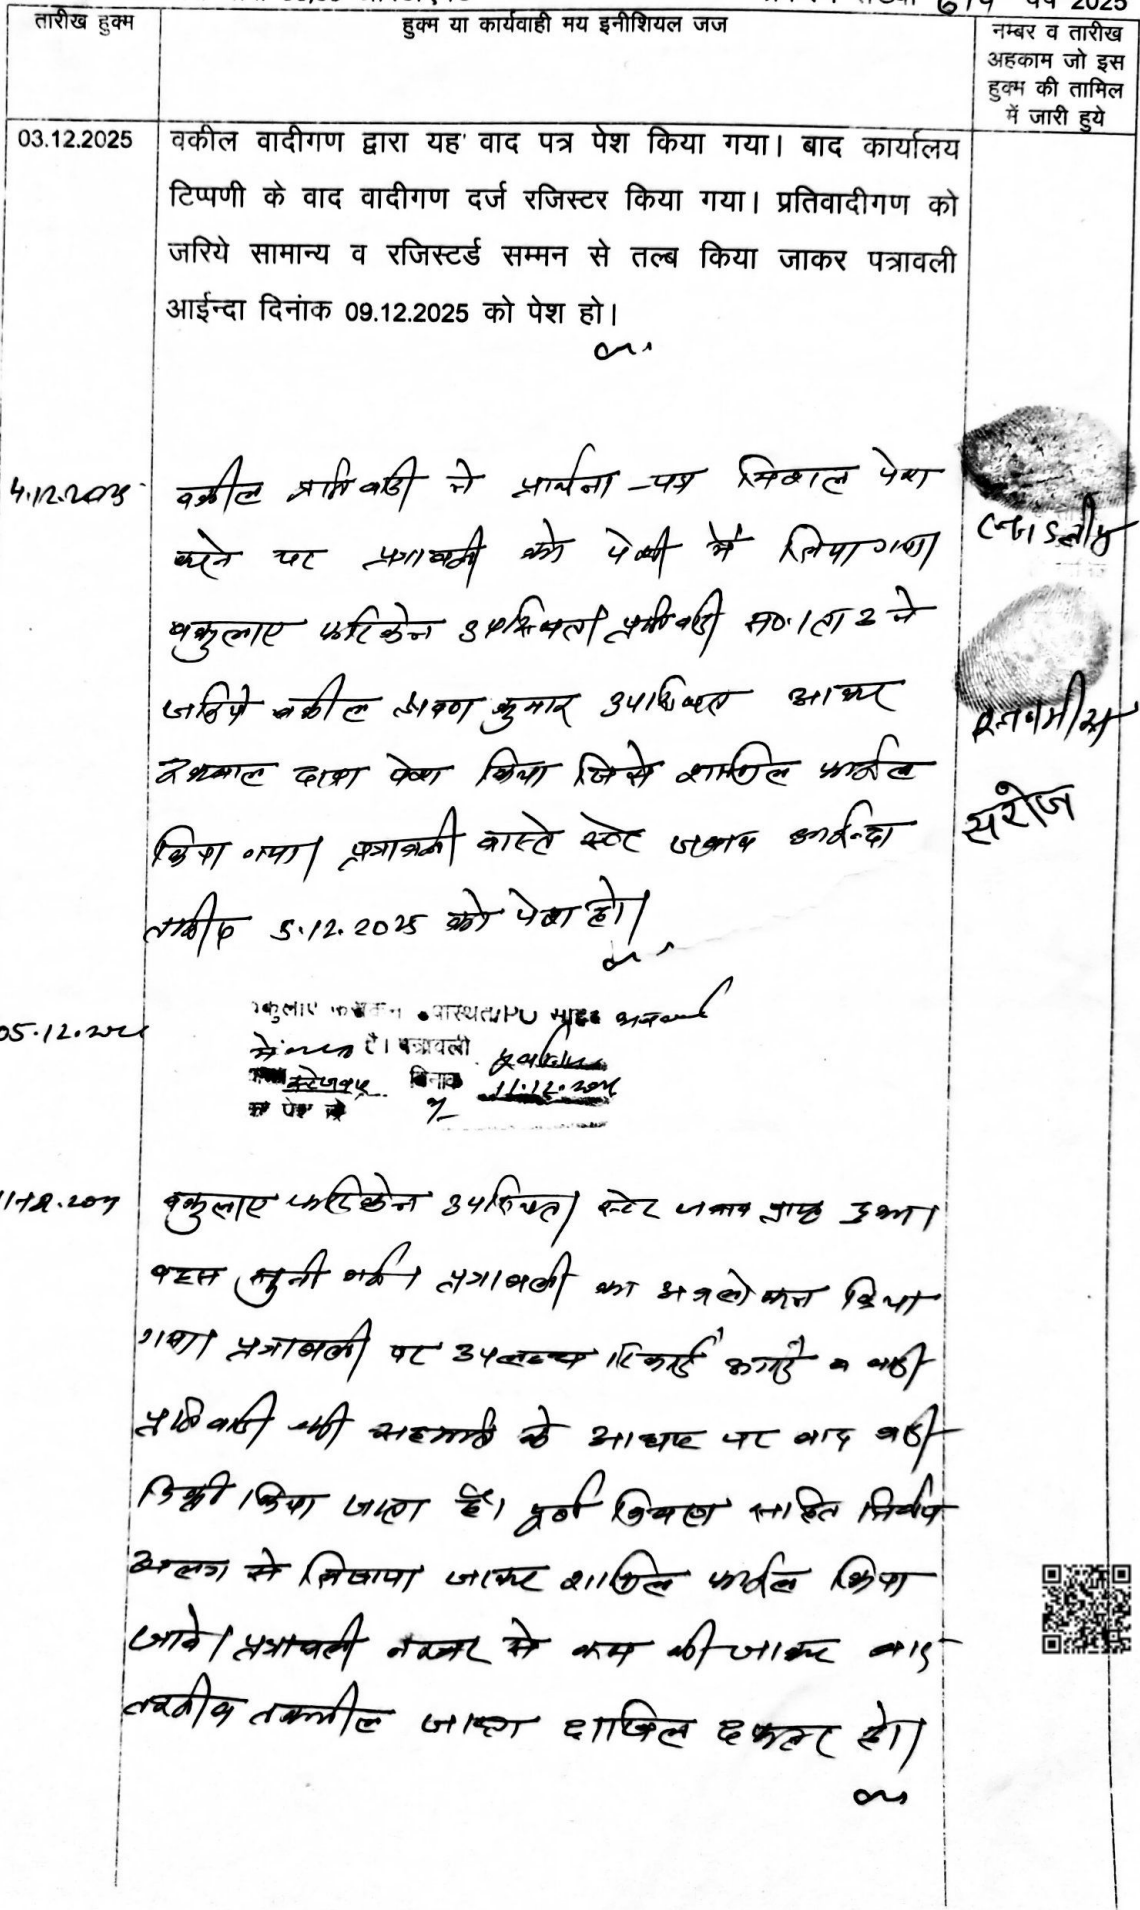 वर्ष 2025
तारीख हुक्म
हुक्म या कार्यवाही मय इनीशियल जज
नम्बर व तारीख
अहकाम जो इस
हुक्म की तामिल
में जारी हुये
03.12.2025
वकील वादीगण द्वारा यह वाद पत्र पेश किया गया। बाद कार्यालय
टिप्पणी के वाद वादीगण दर्ज रजिस्टर किया गया। प्रतिवादीगण को
जरिये सामान्य व रजिस्टर्ड सम्मन से तल्ब किया जाकर पत्रावली
आईन्दा दिनांक 09.12.2025 को पेश हो।
4.12.2025 वकील प्रतिवादी ने प्रार्थना-पत्र पेश
करने पर पत्रावली को पेशी में लिया गया
वकुलाए फरिकेन उपस्थित। प्रतिवादी सं. 1 ता 2 ने
जरिये वकील कुमार उपस्थित आकर
पेश किया जिसे शामिल फाईल
किया गया। पत्रावली वास्ते स्टे जबाब आईन्दा
तारीख 5.12.2025 को पेश हो।
सरोज
05.12.2025
है। पत्रावली
दिनांक 11.12.2025
को पेश हो
वकुलाए फरिकेन उपस्थित। स्टे जबाब प्राप्त हुआ।
बहस सुनी गई। पत्रावली का अवलोकन किया
गया। पत्रावली पर उपलब्ध रिकार्ड व वादी
प्रतिवादी की सहमति के आधार पर वाद वादी
डिक्री किया जाता है। पूर्ण विवरण सहित निर्णय
अलग से लिखाया जाकर शामिल फाईल किया
जावे। पत्रावली नम्बर से कम की जाकर बाद
तकमील दाखिल दफ्तर हो।